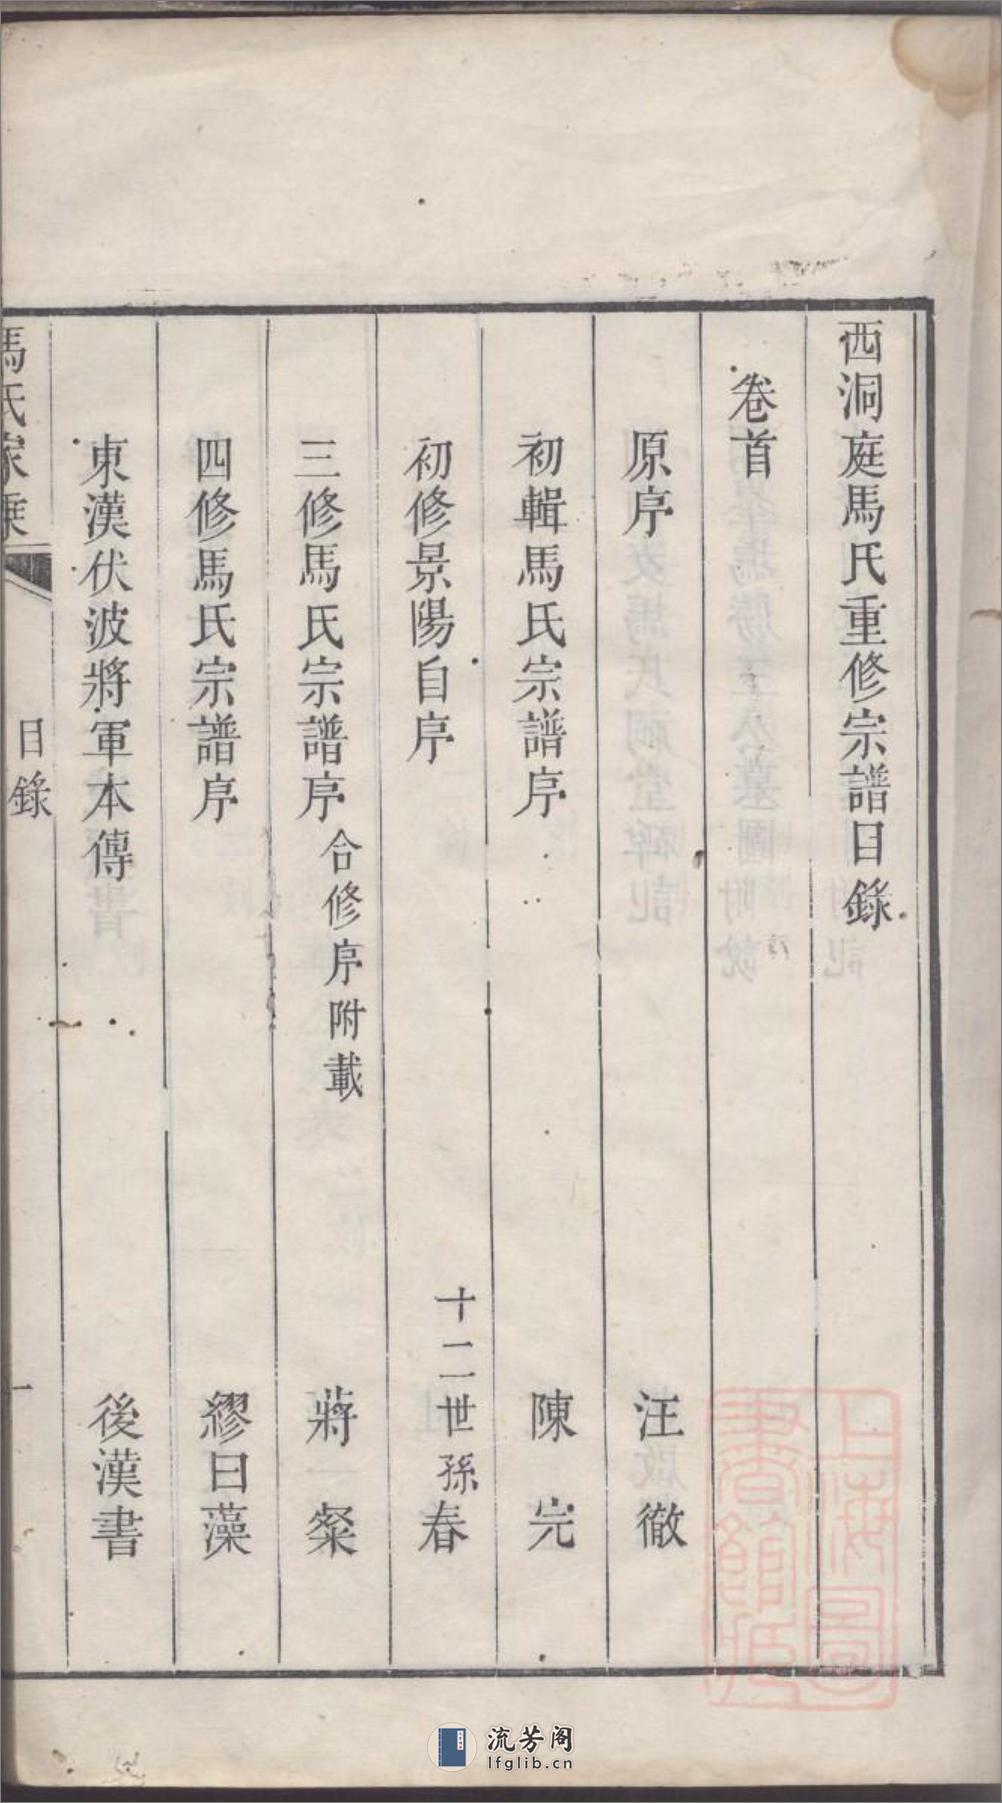 西洞庭馬氏重修宗譜目錄
卷首
原序 汪徹
初輯馬氏宗譜序 陳完
初修景陽自序 十二世孫春
三修馬氏宗譜序 合修序附載 蔣粲
四修馬氏宗譜序 繆曰藻
東漢伏波將軍本傳 後漢書
馬氏家乘 目錄 一
上海圖書館藏
流芳阁
lfglib.cn